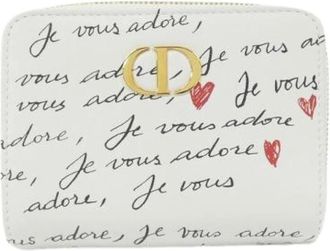 Je vous adore,
vous adore, Je vous adore,
vous adore, ❤ Je vous
adore, Je vous adore
Je vous adore ❤
adore, Je vous
vous adore, Je vous adore,
CD